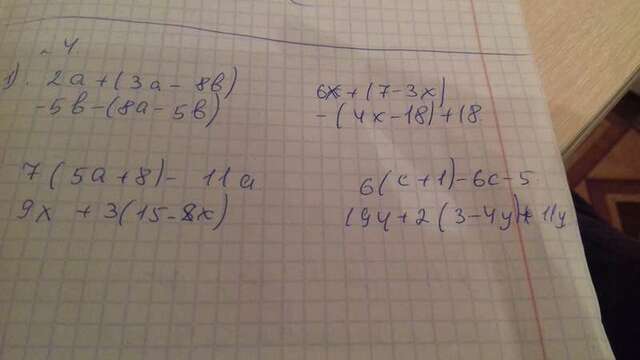 4
1). 2a+(3a-8b)
-5b-(8a-5b)
6x+(7-3x)
-(4x-18)+18.
7(5a+8)-11a
9x+3(15-8x)
6(c+1)-6c-5
19y+2(3-4y)+11y